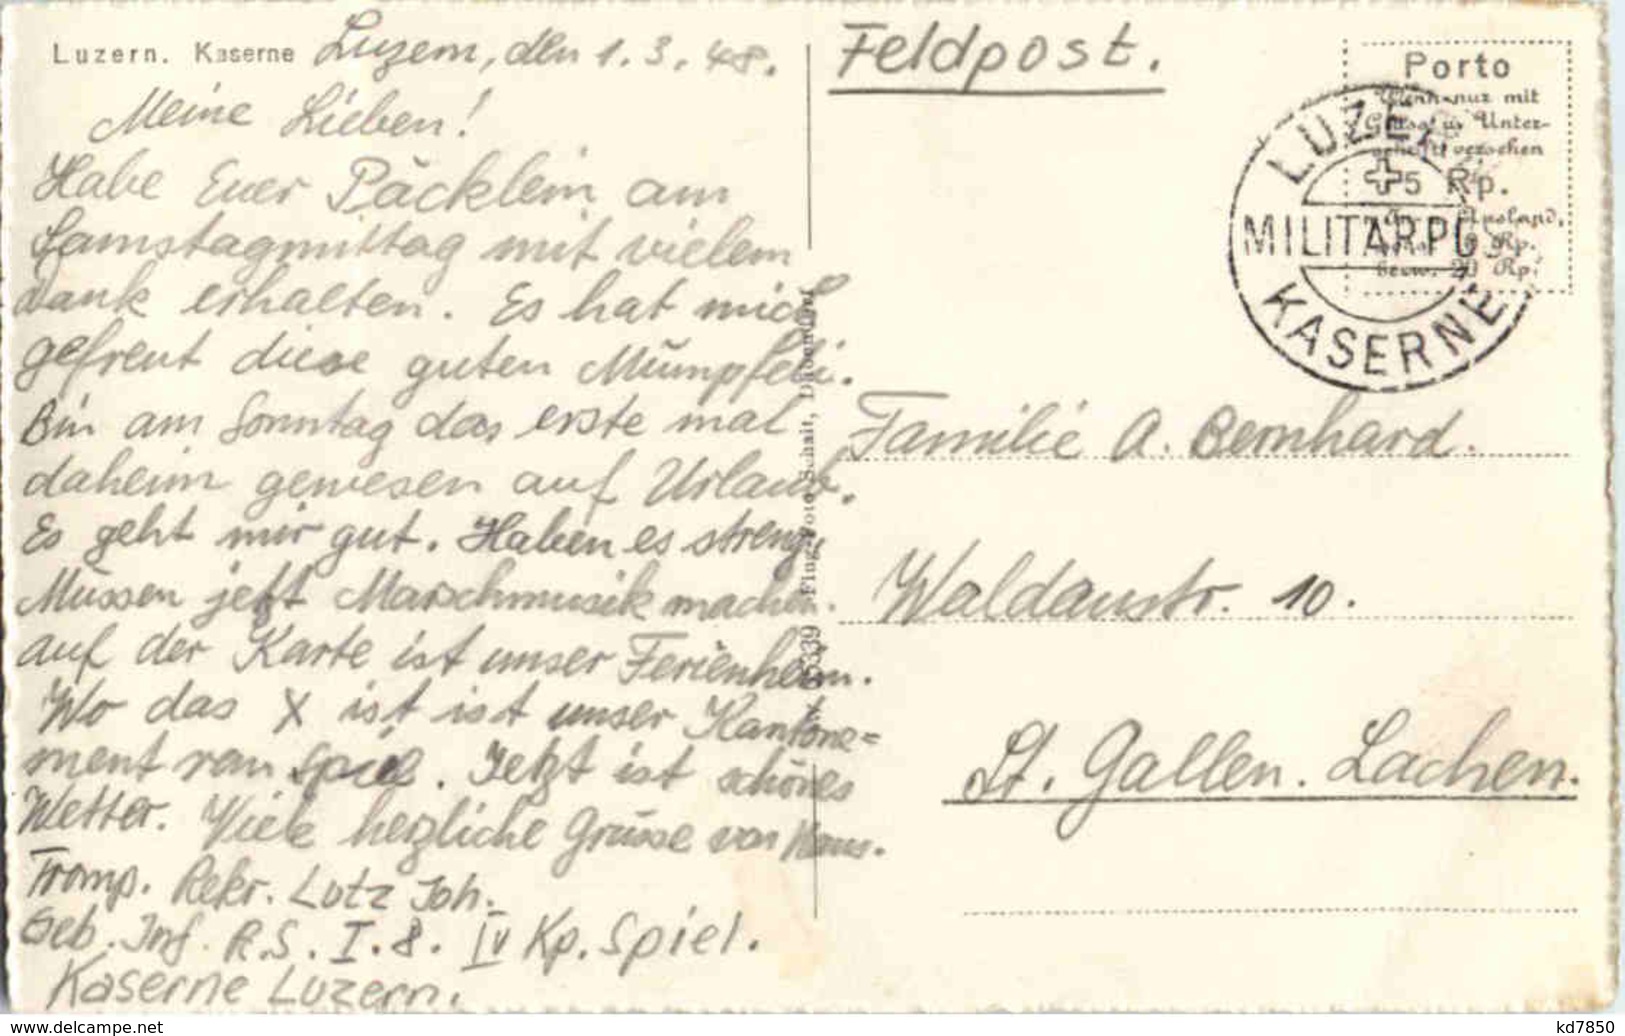 Luzern. Kaserne
Luzern, den 1.3.48.
Meine Lieben!
Habe Euer Päcklein am
Samstagmittag mit vielem
dank erhalten. Es hat mich
gefreut diese guten Mümpfeli.
Bin am Sonntag das erste mal
daheim gewesen auf Urlaub.
Es geht mir gut. Haben es streng.
Müssen jetzt Marschmusik machen.
auf der Karte ist unser Ferienheim.
Wo das X ist ist unser Kantone=
ment von Spiel. Jetzt ist schönes
Wetter. Viele herzliche Grüsse von Hans.
Tromp. Rekr. Lutz Joh.
Geb. Inf. R.S. I. 8. IV Kp. Spiel.
Kaserne Luzern.
Feldpost.
Porto
Wenn nur mit
Gruss u. Unter-
schrift versehen
5 Rp.
Ausland,
Rp.
bezw. 20 Rp.
LUZERN
MILITÄRPOST
KASERNE
Familie A. Bernhard.
Waldaustr. 10.
St. Gallen. Lachen.
kd7850